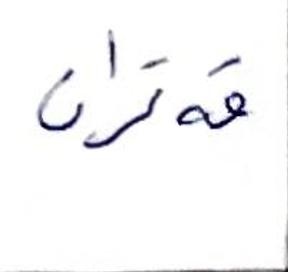 قەتران